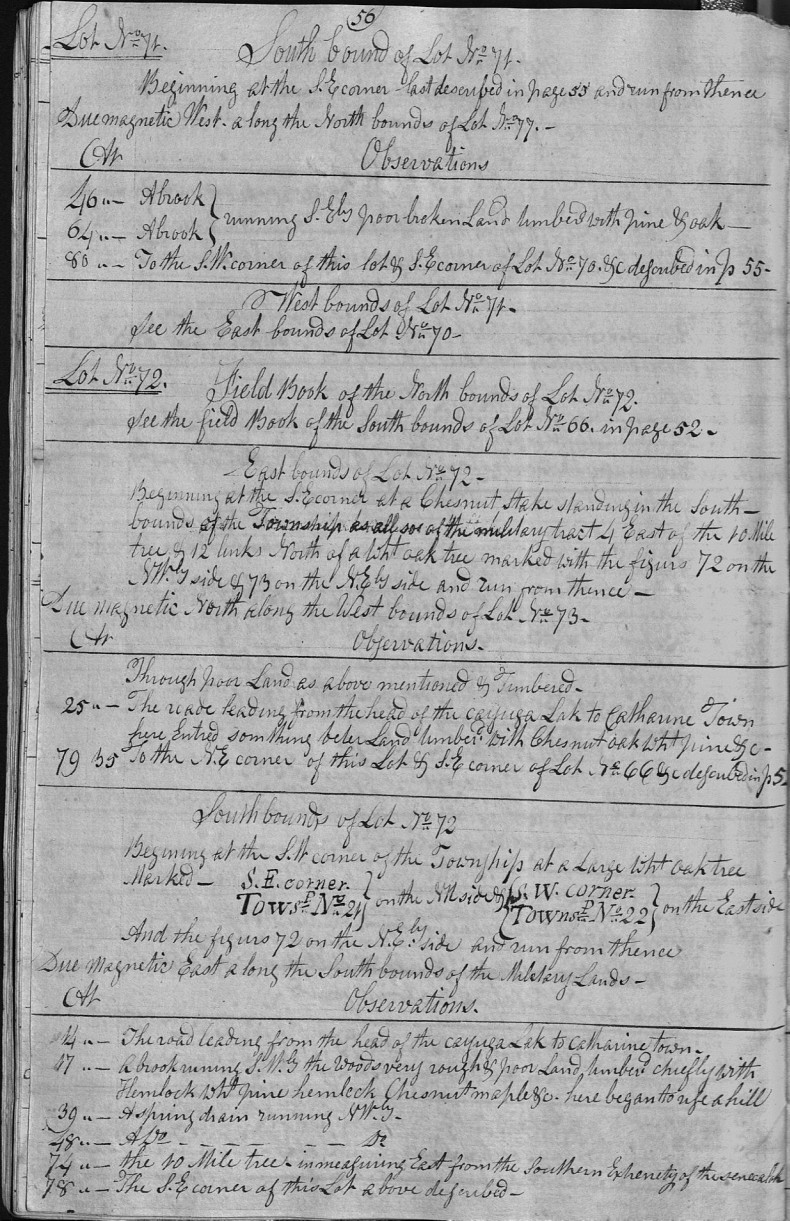 56
Lot No. 71.
South bound of Lot No. 71.
Beginning at the S.E corner last described in page 55 and run from thence
Due magnetic West. along the North bounds of Lot No. 77.-
Ch Observations
46 " - A brook
64 " - A brook } running S. Ely poor broken Land timberd with pine & oak -
80 " - To the S.W. corner of this lot & S.E corner of Lot No. 70. &c described in p 55-
West bounds of Lot No. 71-
See the East bounds of Lot No. 70-
Lot No. 72.
Field Book of the North bounds of Lot No. 72.
See the field Book of the South bounds of Lot No. 66. in page 52-
East bounds of Lot No. 72-
Beginning at the S.E corner at a Chesnut Stake standing in the South-
bounds of the Township as allso of the military tract 4 East of the 10 Mile
tree & 12 links North of a Wht oak tree marked with the figurs 72 on the
NWly side & 73 on the N.Ely side and run from thence-
Due magnetic North along the West bounds of Lot No. 73-
Ch Observations.
Through poor Land as above mentioned & Timbered-
25 " - The roade leading from the head of the cayuga Lak to Catharine Town
here Entred somthing beter Land timberd with Chesnut oak Wht pine &c-
79 35 To the N.E corner of this Lot & S.E corner of Lot No. 66 &c described in p 5
South bounds of Lot No. 72
Begining at the S.W corner of the Township at a Large Wht oak tree
Marked - S.E. corner.
Townsp No. 21 } on the NW side & { S.W. corner.
Townsp No. 22 } on the East side
And the figurs 72 on the N.Ely side and run from thence
Due Magnetic East along the South bounds of the Military Lands-
Ch Observations.
14 " - The road leading from the head of the cayuga Lak to Catharine town-
17 " - a brook running S.Wly the woods very rough & poor Land timberd chiefly with
Hemlock Wht pine hemlock Chesnut maple &c. here began to rise a hill
39 " - A spring drain running NWly-
48 " - A Do - - - - - - - Do
74 " - the 10 Mile tree - in measuring East from the Southern Extremety of the seneca Lak
78 " - The S.E corner of this Lot above described-